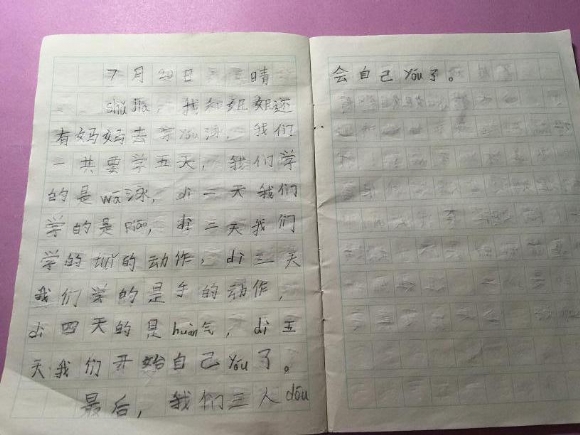 7月20日 晴
我和姐姐还
有妈妈去学you泳，我们
一共要学五天，我们学
的是wā泳，di一天我们
学的是，di二天我们
学的tuǐ的动作，di三天
我们学的是手的动作，
di四天的是huàn气，di五
天我们开始自己you了。
最后，我们三人dōu
会自己you了。